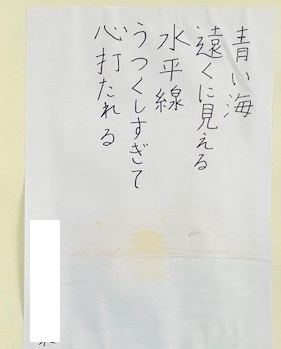 青い海
遠くに見える
水平線
うつくしすぎて
心打たれる